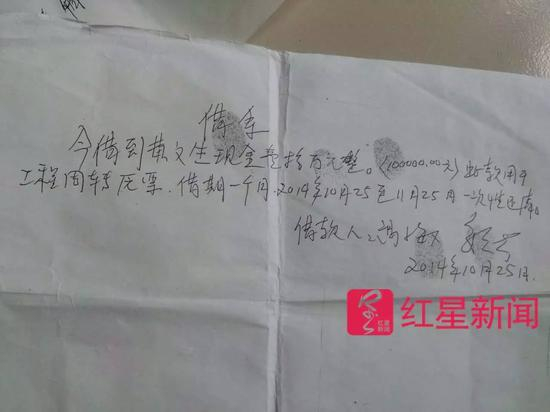 借条
今借到黄文生现金壹拾万元整。(100000.00元)此款用于
工程周转 借期一个月.2014年10月25至11月25日一次性还清。
借款人:冯
2014年10月25日.
红星新闻